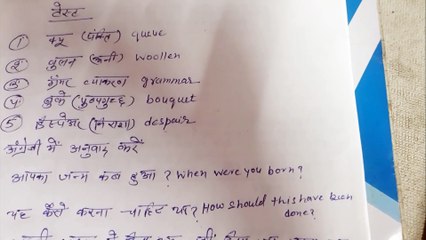 टेस्ट
① क्यू (पंक्ति) queue
② वुलन (ऊनी) woollen
③ ग्रैमर व्याकरण grammar
④ बुके (पुष्पगुच्छ) bouquet
⑤ डैस्पेअर (निराशा) despair
अंग्रेजी में अनुवाद करें
आपका जन्म कब हुआ? When were you born?
यह कैसे करना चाहिए था? How should this have been
done?